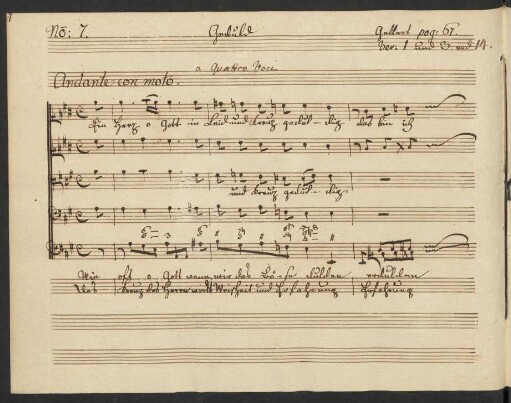 No: 7. Geduld Gellert pag: 61.
Ver: 1 und 3. und 14.
a quattro Voci
Andante con moto.
Ein Herz o Gott in Leid und Kreuz geduldig das bin ich
und Kreuz geduldig
Wie oft o Gott wenn wir das Böse dulden, erdulden
Das Kreuz des Herrn wirkt Weisheit und Erfahrung Erfahrung